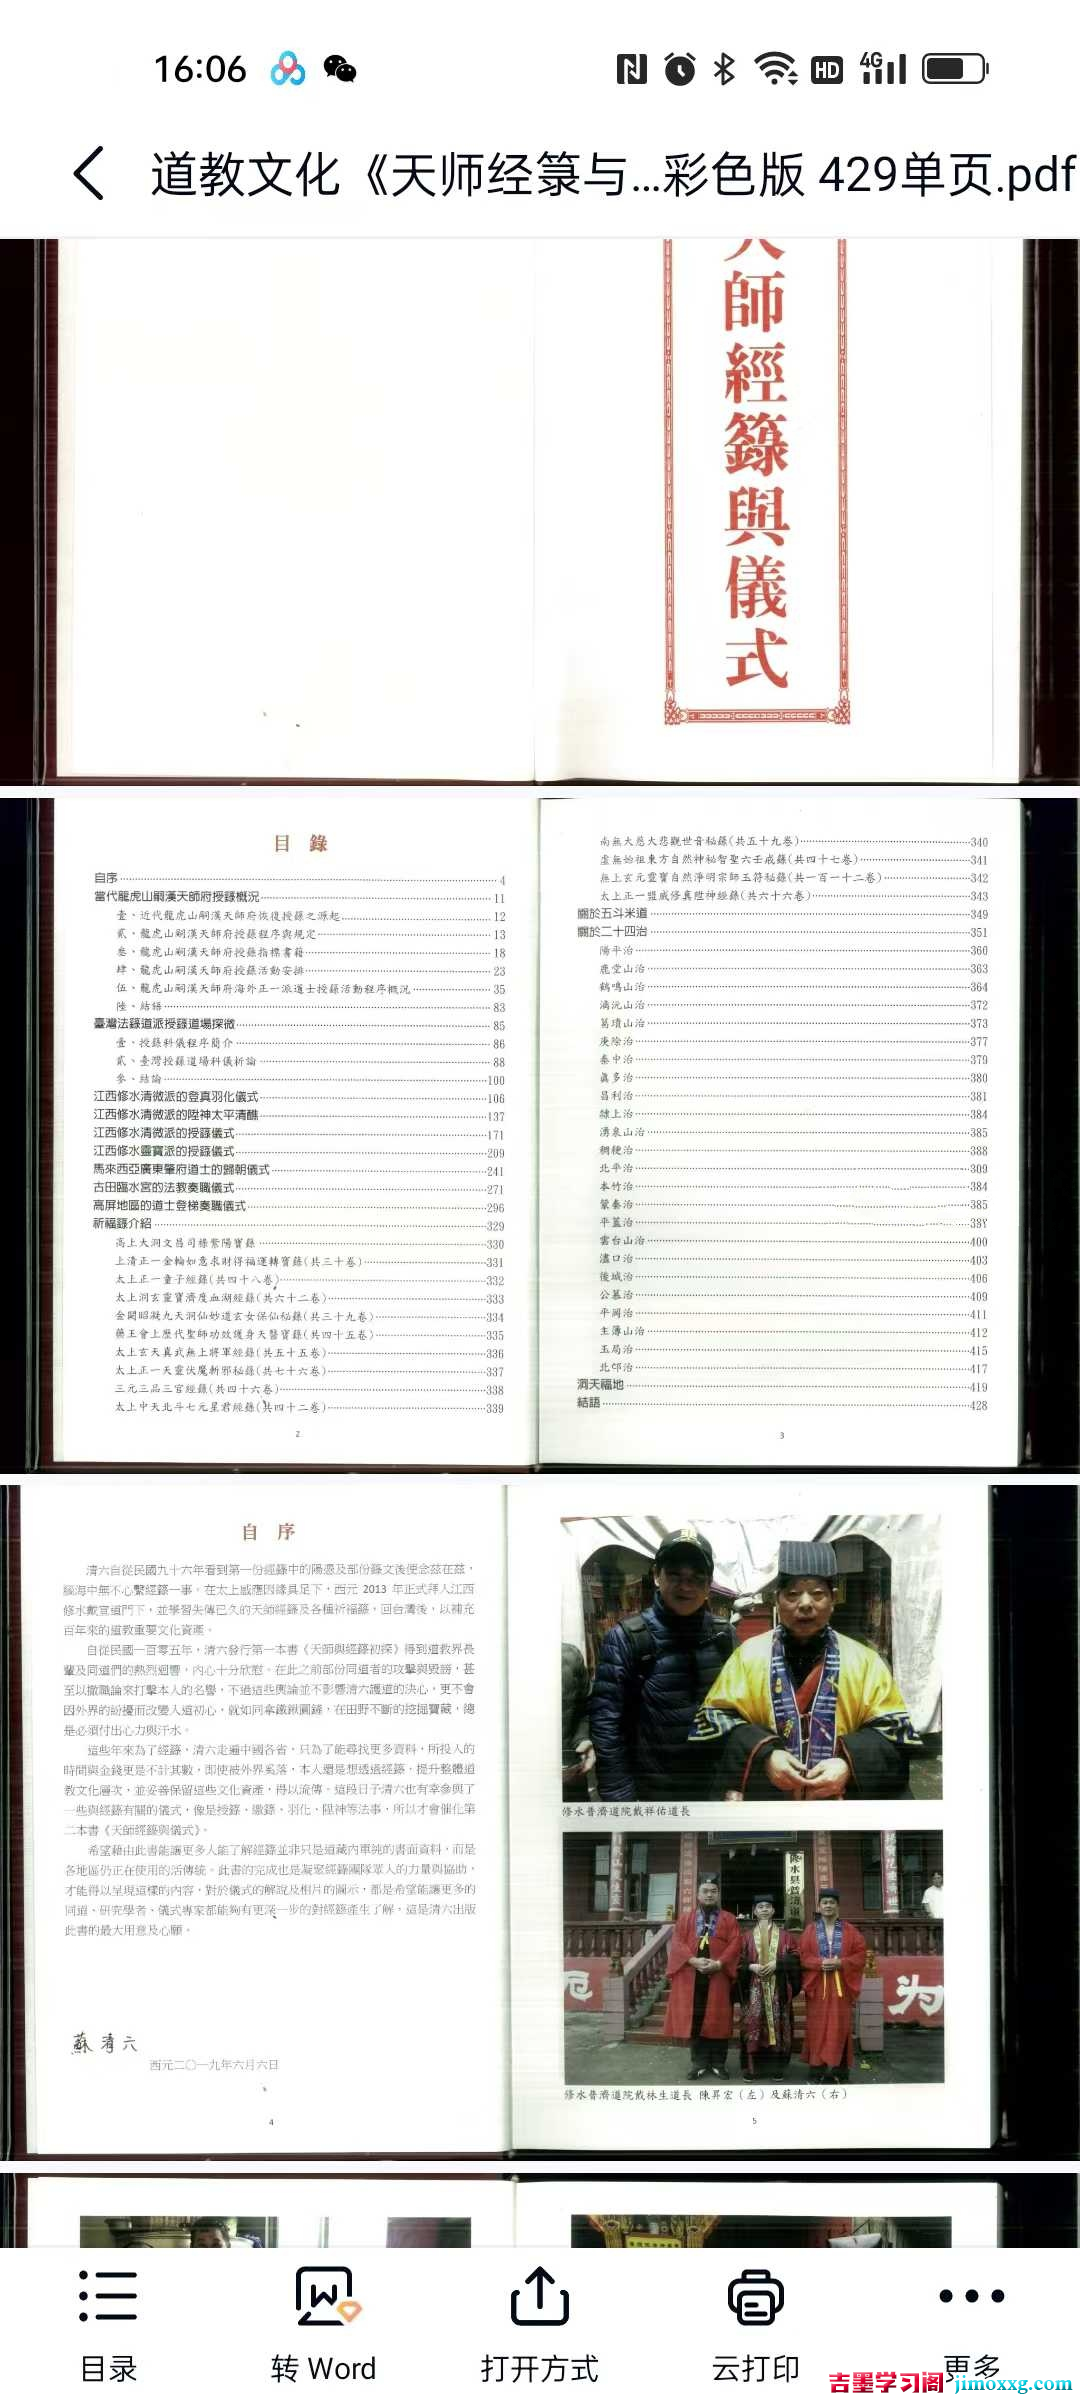 16:06
HD
4G
道教文化《天师经箓与...彩色版 429单页.pdf
師經籙與儀式
目 錄
自序 4
當代龍虎山嗣漢天師府授籙概況 11
壹、近代龍虎山嗣漢天師府恢復授籙之源起 12
貳、龍虎山嗣漢天師府授籙程序與規定 13
叁、龍虎山嗣漢天師府授籙指標書籍 18
肆、龍虎山嗣漢天師府授籙活動安排 23
伍、龍虎山嗣漢天師府海外正一派道士授籙活動程序概況 35
陸、結語 83
臺灣法籙道派授籙道場探微 85
壹、授籙科儀程序簡介 86
貳、臺灣授籙道場科儀析論 88
參、結論 100
江西修水清微派的登真羽化儀式 106
江西修水清微派的陞神太平清醮 137
江西修水清微派的授籙儀式 171
江西修水靈寶派的授籙儀式 209
馬來西亞廣東肇府道士的歸朝儀式 241
古田臨水宮的法教奏職儀式 271
高屏地區的道士登梯奏職儀式 296
祈福籙介紹 329
高上大洞文昌司祿紫陽寶籙 330
上清正一金輪如意求財得福運轉寶籙(共三十卷) 331
太上正一童子經籙(共四十八卷) 332
太上洞玄靈寶濟度血湖經籙(共六十二卷) 333
金闕昭凝九天洞仙妙道玄女保仙秘籙(共三十九卷) 334
藥王會上歷代聖師功效護身天醫寶籙(共四十五卷) 335
太上玄天真武無上將軍經籙(共五十五卷) 336
太上正一天靈伏魔斬邪秘籙(共七十六卷) 337
三元三品三官經籙(共四十六卷) 338
太上中天北斗七元星君經籙(共四十二卷) 339
2
南無大慈大悲觀世音秘籙(共五十九卷) 340
虛無始祖東方自然神祕智聖六壬戒籙(共四十七卷) 341
無上玄元靈寶自然淨明宗師玉符秘籙(共一百一十二卷) 342
太上正一盟威修真陞神經籙(共六十六卷) 343
關於五斗米道 349
關於二十四治 351
陽平治 360
鹿堂山治 363
鶴鳴山治 364
漓沅山治 372
葛璝山治 373
庚除治 377
秦中治 379
真多治 380
昌利治 381
隸上治 384
湧泉山治 385
稠稉治 388
北平治 309
本竹治 384
蒙秦治 385
平蓋治
雲台山治 400
濜口治 403
後城治 406
公慕治 409
平岡治 411
主簿山治 412
玉局治 415
北邙治 417
洞天福地 419
結語 428
3
自 序
清六自從民國九十六年看到第一份經籙中的陽憑及部份籙文後便念茲在茲，
腦海中無不心繫經籙一事。在太上感應因緣具足下，西元 2013 年正式拜入江西
修水戴宣道門下，並學習失傳已久的天師經籙及各種祈福籙，回台灣後，以補充
百年來的道教重要文化資產。
自從民國一百零五年，清六發行第一本書《天師與經籙初探》得到道教界長
輩及同道們的熱烈迴響，內心十分欣慰。在此之前部份同道者的攻擊與毀謗，甚
至以撤職論來打擊本人的名譽，不過這些輿論並不影響清六護道的決心，更不會
因外界的紛擾而改變入道初心，就如同拿鐵鍬圓鏟，在田野不斷的挖掘寶藏，總
是必須付出心力與汗水。
這些年來為了經籙，清六走遍中國各省，只為了能尋找更多資料，所投入的
時間與金錢更是不計其數，即使被外界奚落，本人還是想透過經籙，提升整體道
教文化層次，並妥善保留這些文化資產，得以流傳。這段日子清六也有幸參與了
一些與經籙有關的儀式，像是授籙、繳籙、羽化、陞神等法事，所以才會催化第
二本書《天師經籙與儀式》。
希望藉由此書能讓更多人能了解經籙並非只是道藏內單純的書面資料，而是
各地區仍正在使用的活傳統。此書的完成也是凝聚經籙團隊眾人的力量與協助，
才能得以呈現這樣的內容，對於儀式的解說及相片的圖示，都是希望能讓更多的
同道、研究學者、儀式專家都能夠有更深一步的對經籙產生了解，這是清六出版
此書的最大用意及心願。
蘇清六
西元二〇一九年六月六日
4
修水普濟道院戴祥佑道長
为
修水普濟道院戴林生道長 陳昇宏（左）及蘇清六（右）
5
目录
转 Word
打开方式
云打印
更多
吉墨学习阁 jimoxxg.com